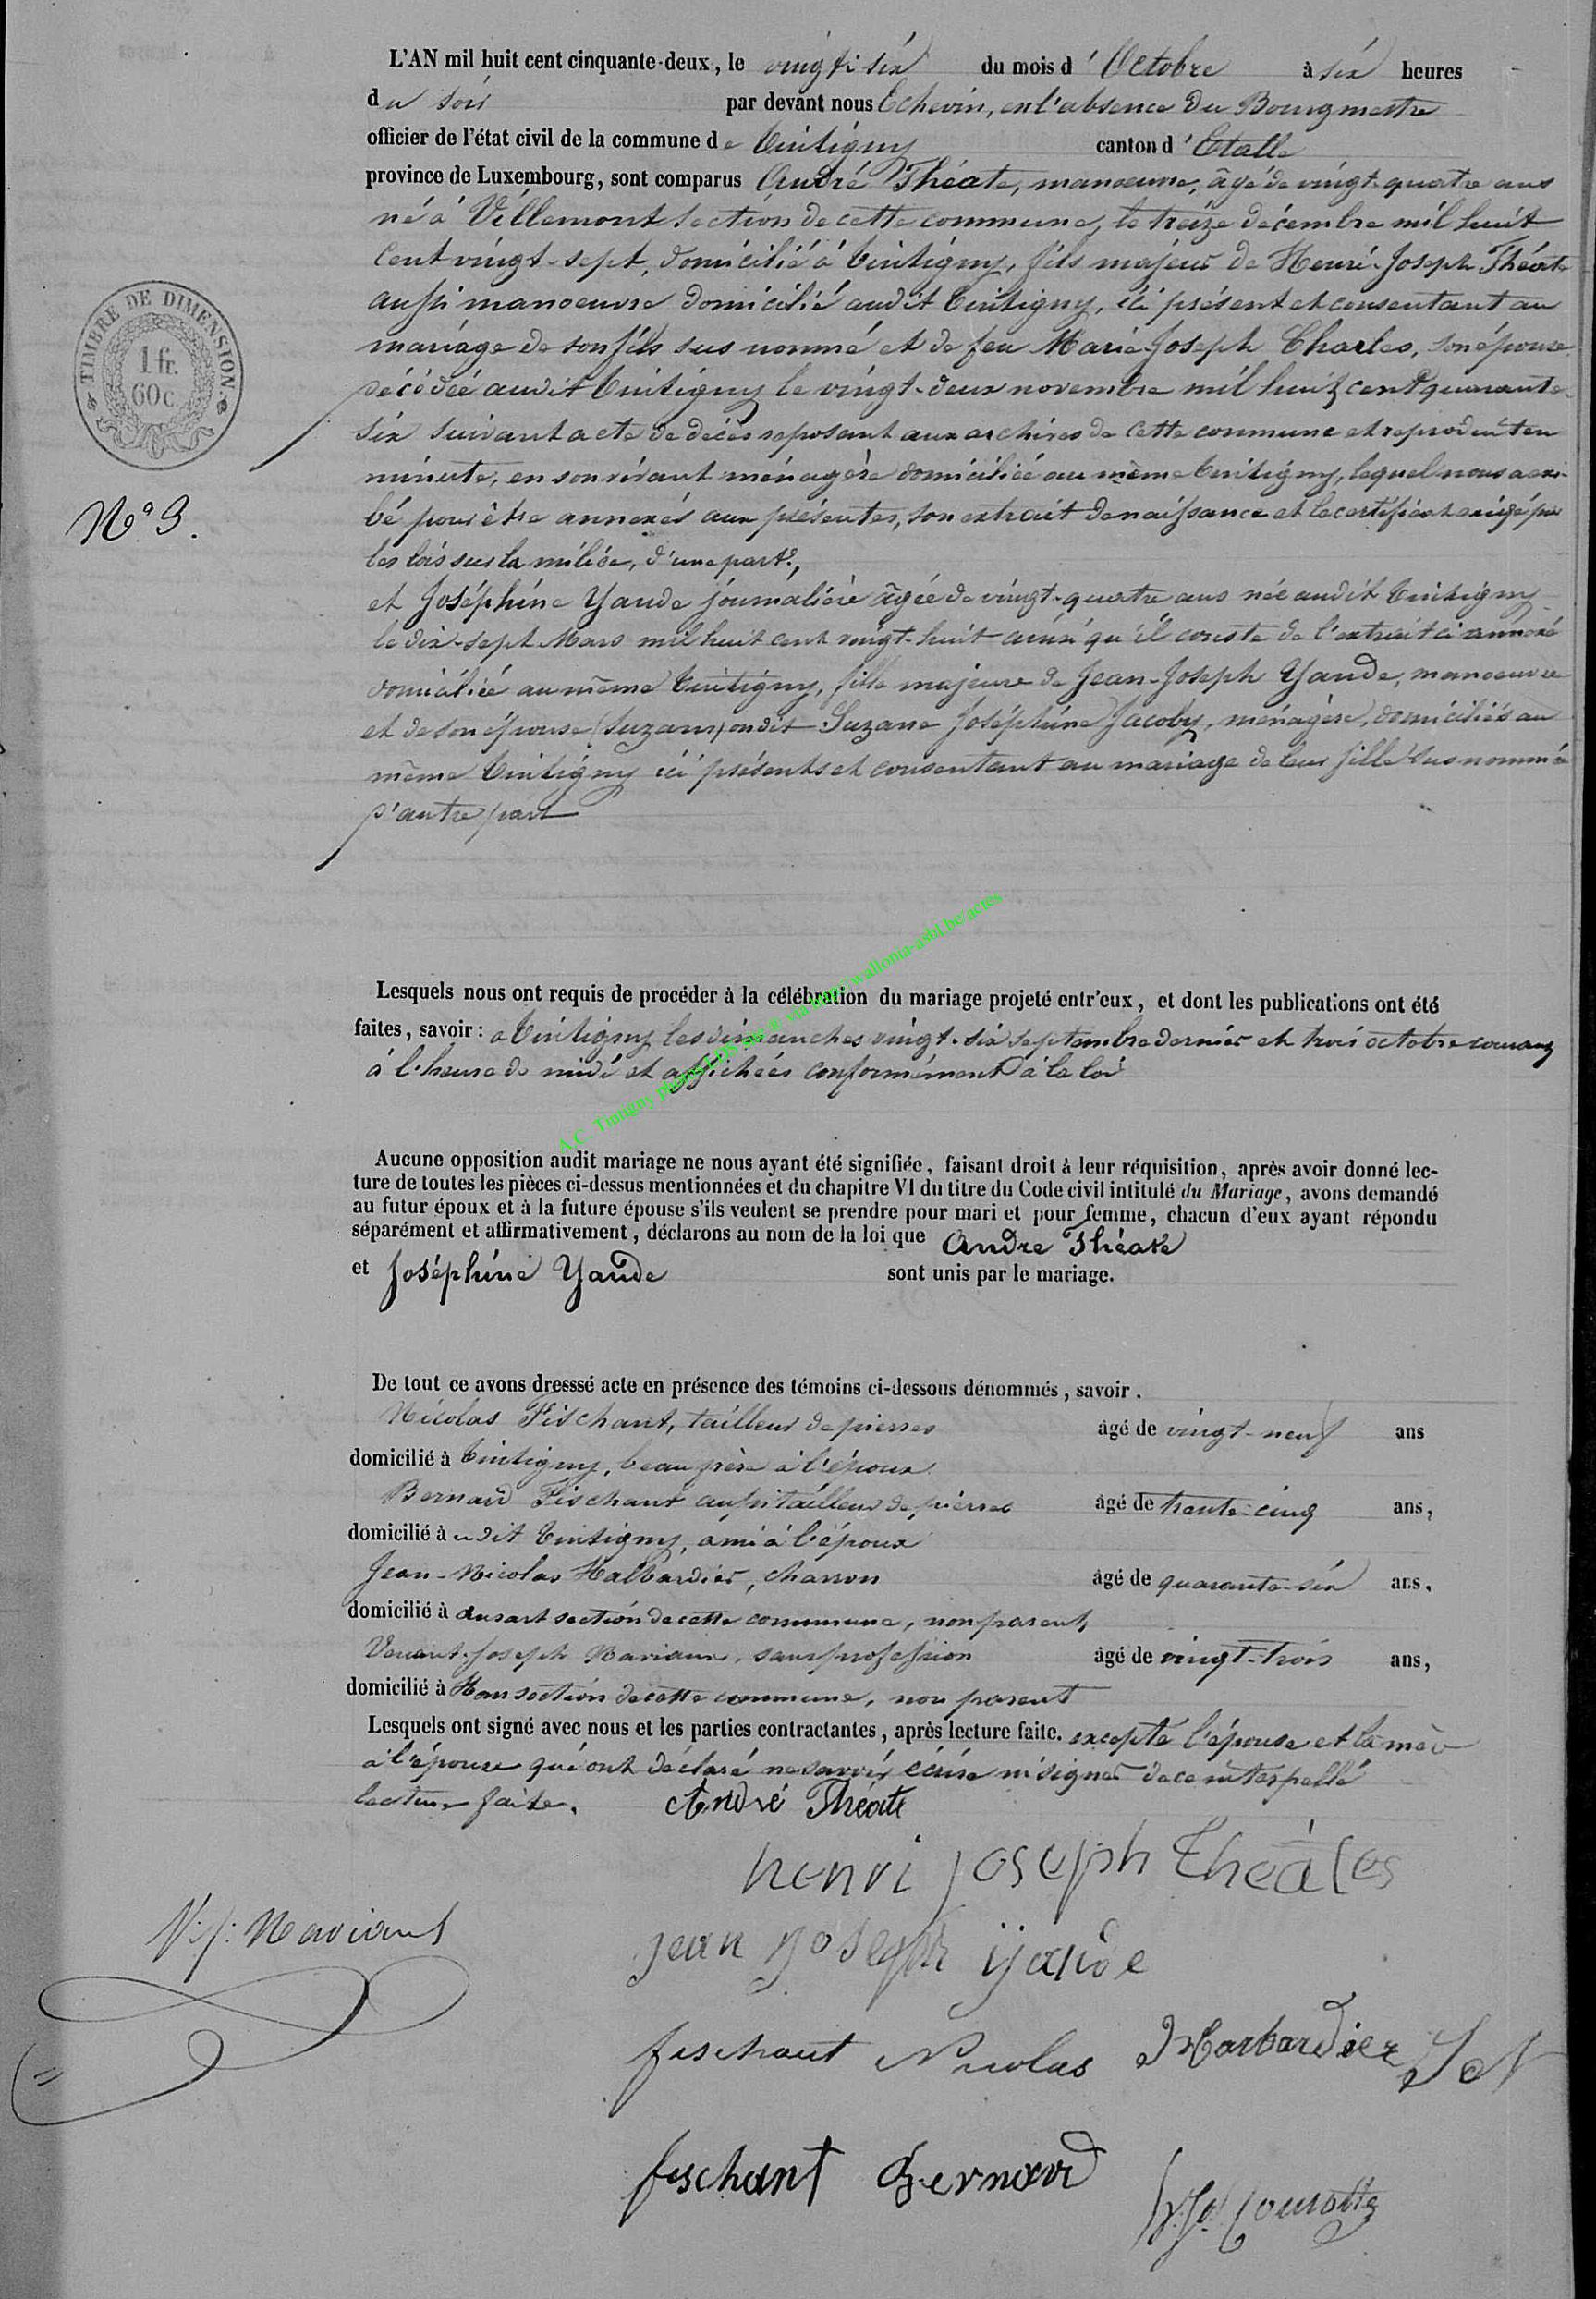 L'AN mil huit cent cinquante-deux, le vingt six du mois d'Octobre à six heures
du soir par devant nous Echevin, en l'absence du Bourgmestre
officier de l'état civil de la commune de Tintigny canton d'Etalle
province de Luxembourg, sont comparus André Théate, manoeuvre, âgé de vingt-quatre ans
né à Villemont section de cette commune, le treize décembre mil huit
cent vingt-sept, domicilié à Tintigny, fils majeur de Henri-Joseph Théate
aussi manoeuvre domicilié audit Tintigny, ici présent et consentant au
mariage de son fils sus nommé et de feu Marie-Joseph Charles, son épouse
décédée audit Tintigny le vingt-deux novembre mil huit cent quarante
six suivant acte de décès reposant aux archives de cette commune et reproduit en
minute, en son vivant ménagère domiciliée au même Tintigny, lequel nous a exi-
bé pour être annexés aux présentes, son extrait de naissance et le certificat exigé par
les lois sur la milice, d'une part,
et Joséphine Yande journalière âgée de vingt-quatre ans née audit Tintigny
le dix-sept Mars mil huit cent vingt-huit ainsi qu'il conste de l'extrait ci annexé
domiciliée au même Tintigny, fille majeure de Jean-Joseph Yande, manoeuvre
et de son épouse (Suzann) on dit Suzane Joséphine Jacoby, ménagère, domiciliés au
même Tintigny ici présents et consentant au mariage de leur fille sus nommée
d'autre part
TIMBRE DE DIMENSION.
1 fr.
60 c.
N° 9.
Lesquels nous ont requis de procéder à la célébration du mariage projeté entr'eux, et dont les publications ont été
faites, savoir : a Tintigny les dimanches vingt-six septembre dernier et trois octobre courant
à l'heure de midi et affichées conformément à la loi
A.C. Tintigny via wallonia-asbl.be/actes
Aucune opposition audit mariage ne nous ayant été signifiée, faisant droit à leur réquisition, après avoir donné lec-
ture de toutes les pièces ci-dessus mentionnées et du chapitre VI du titre du Code civil intitulé du Mariage, avons demandé
au futur époux et à la future épouse s'ils veulent se prendre pour mari et pour femme, chacun d'eux ayant répondu
séparément et affirmativement, déclarons au nom de la loi que André Théate
et Joséphine Yande sont unis par le mariage.
De tout ce avons dresssé acte en présence des témoins ci-dessous dénommés, savoir.
Nicolas Fischant, tailleur de pierres âgé de vingt-neuf ans
domicilié à Tintigny, beau frère à l'époux
Bernard Fischant aussi tailleur de pierres âgé de trente-cinq ans,
domicilié à udit Tintigny, ami à l'époux
Jean-Nicolas Halbardier, charron âgé de quarante-six ans,
domicilié à ansart section de cette commune, non parent
Joseph sans profession âgé de vingt-trois ans,
domicilié à Han section de cette commune, non parent
Lesquels ont signé avec nous et les parties contractantes, après lecture faite. excepté l'épouse et la mère
à l'épouse qui ont déclaré ne savoir écrire ni signer de ce interpellé
lecture faite. André Théate
henri joseph théates
jean joseph yande
V. J. Naviaux
fischant Nicolas Harbardier J N
fischant Bernard